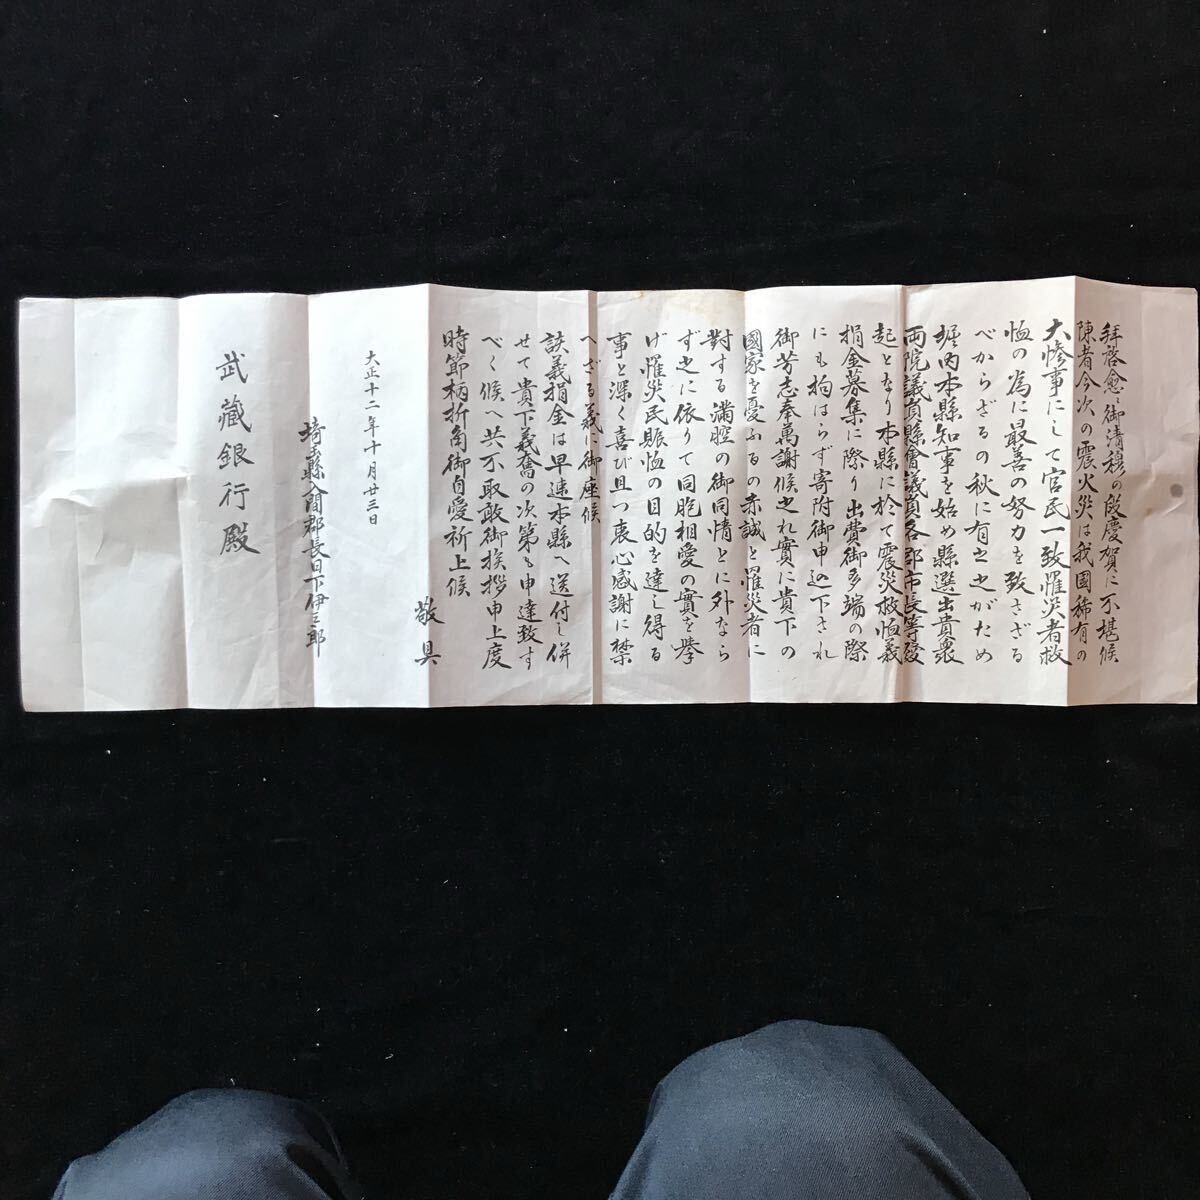 拝啓愈々御清穆の段慶賀に不堪候
陳者今次の震火災は我国稀有の
大惨事にして官民一致罹災者救
恤の為に最善の努力を致さゞる
べからざるの秋に有之之がため
堀内本縣知事を始め縣選出貴衆
両院議員縣會議員各郡市長等發
起となり本縣に於て震災救恤義
捐金募集に際り出費御多端の際
にも拘はらず寄附御申込下され
御芳志奉萬謝候之れ實に貴下の
國家を憂ふるの赤誠と罹災者に
對する満腔の御同情とに外なら
ず之に依りて同胞相愛の實を挙
げ罹災民賑恤の目的を達し得る
事と深く喜び且つ衷心感謝に禁
へざる義に御座候
該義捐金は早速本縣へ送付し併
せて貴下義奮の次第も申達致す
べく候へ共不取敢御挨拶申上度
時節柄折角御自愛祈上候
敬具
大正十二年十月廿三日
埼玉縣入間郡長日下伊三郎
武藏銀行殿